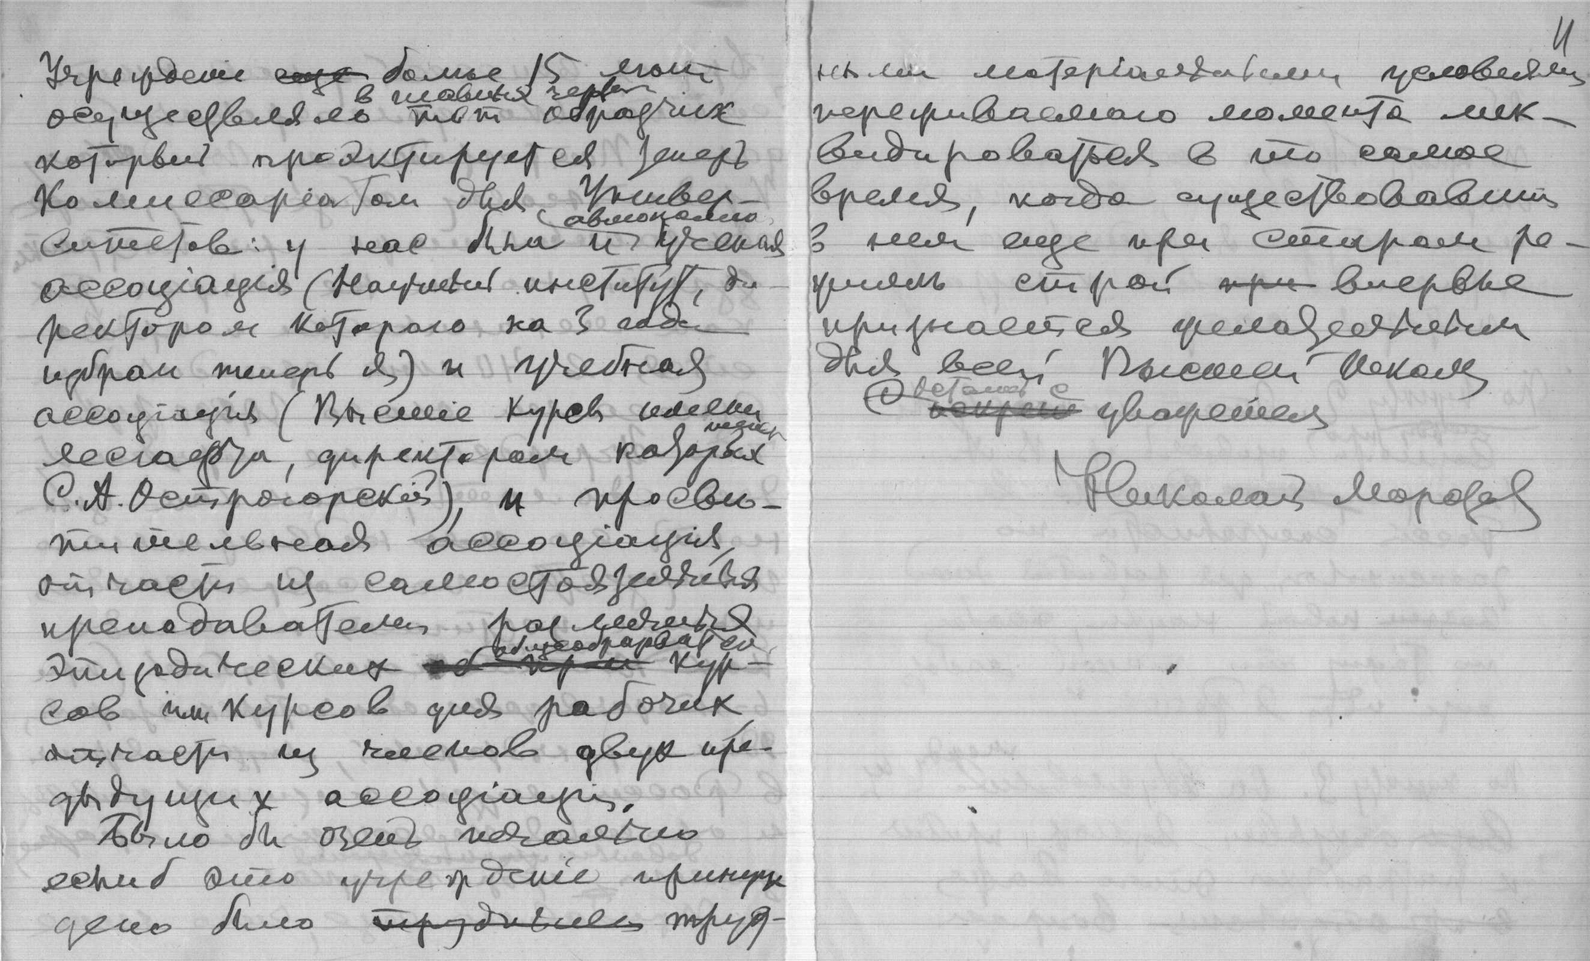 11
Учреждение ~~еще~~ более 15 лет
в главных чертах
осуществляло тот образчик
который проэктируется теперь
Комиссаріатом для Универ-
автономно
ситетов: у нас была и ученая
ассоціація (Научный институт, ди-
ректором которого на 3 года
избран теперь я) и учебная
ассоціація (Высшіе Курсы имени
Лесгафта, директором которых
С. А. Острогорскій), и просве-
тительная ассоціація,
отчасти из самостоятельных
преподавателей различных
общеобразоват
эпизодических кур-
сов или курсов для рабочих,
отчасти из членов двух пре-
дыдущих ассоціацій.
Было бы очень печально
если б это учрежденіе принуж
дено было труд-
ными матеріальными условіями
переживаемого момента лик-
видироваться в то самое
время, когда существовавшій
в нем еще при старом ре-
жиме строй ~~при~~ впервые
признается желательным
для всей Высшей Школы
Остаюсь с
уважением
Николай Морозов